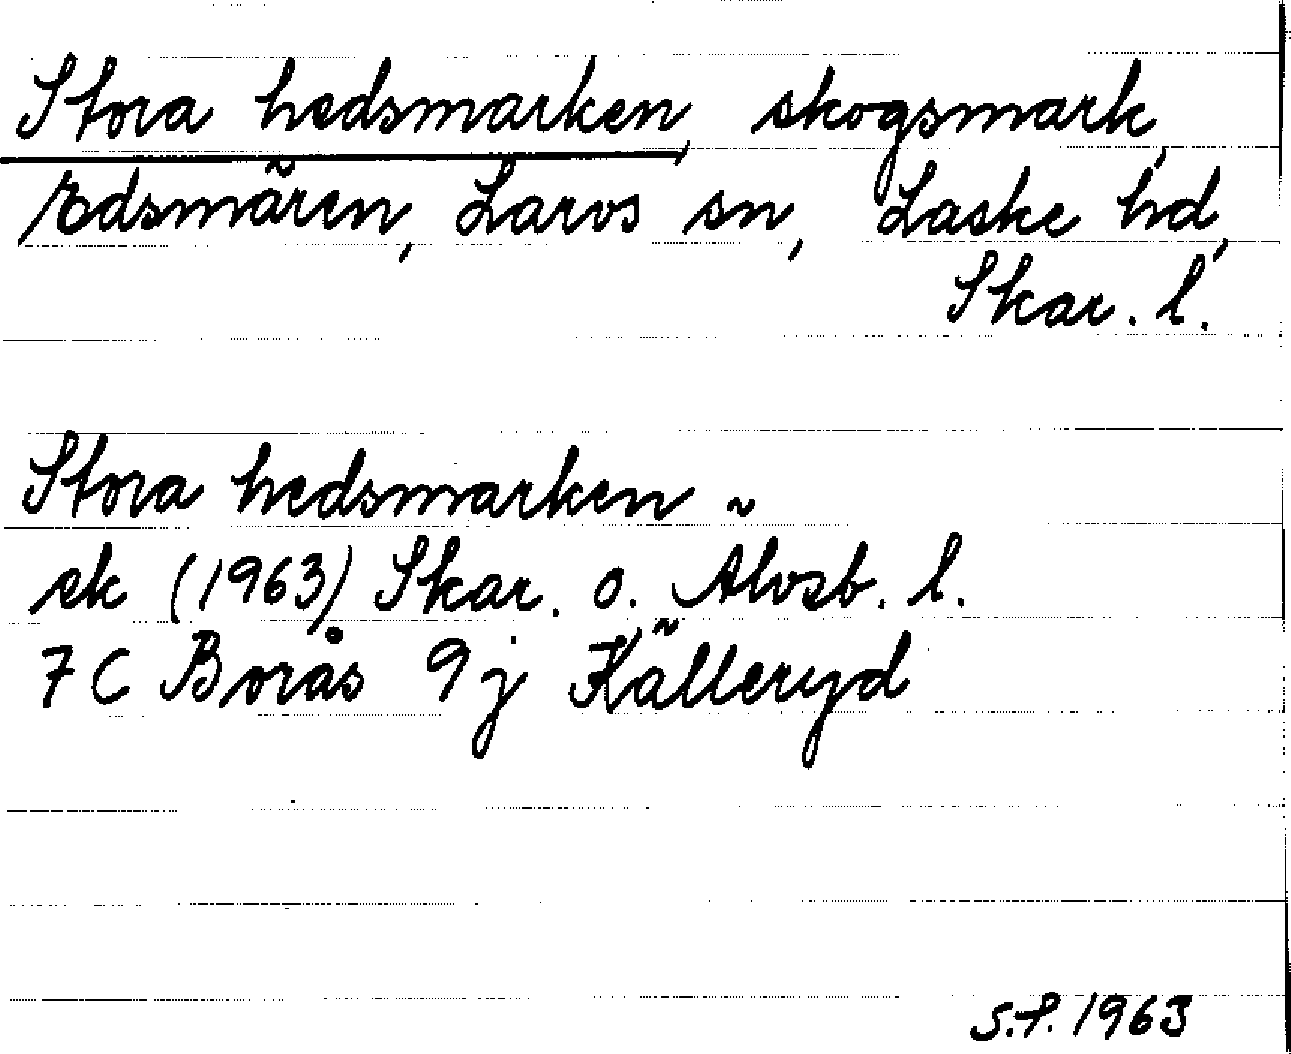 Stora hedsmarken, skogsmark,
Edsmären, Larvs sn, Laske hd,
Skar. l.
Stora hedsmarken ~
ek (1963) Skar. o. Älvsb. l.
7 C Borås 9 j Källeryd
S.F. 1963